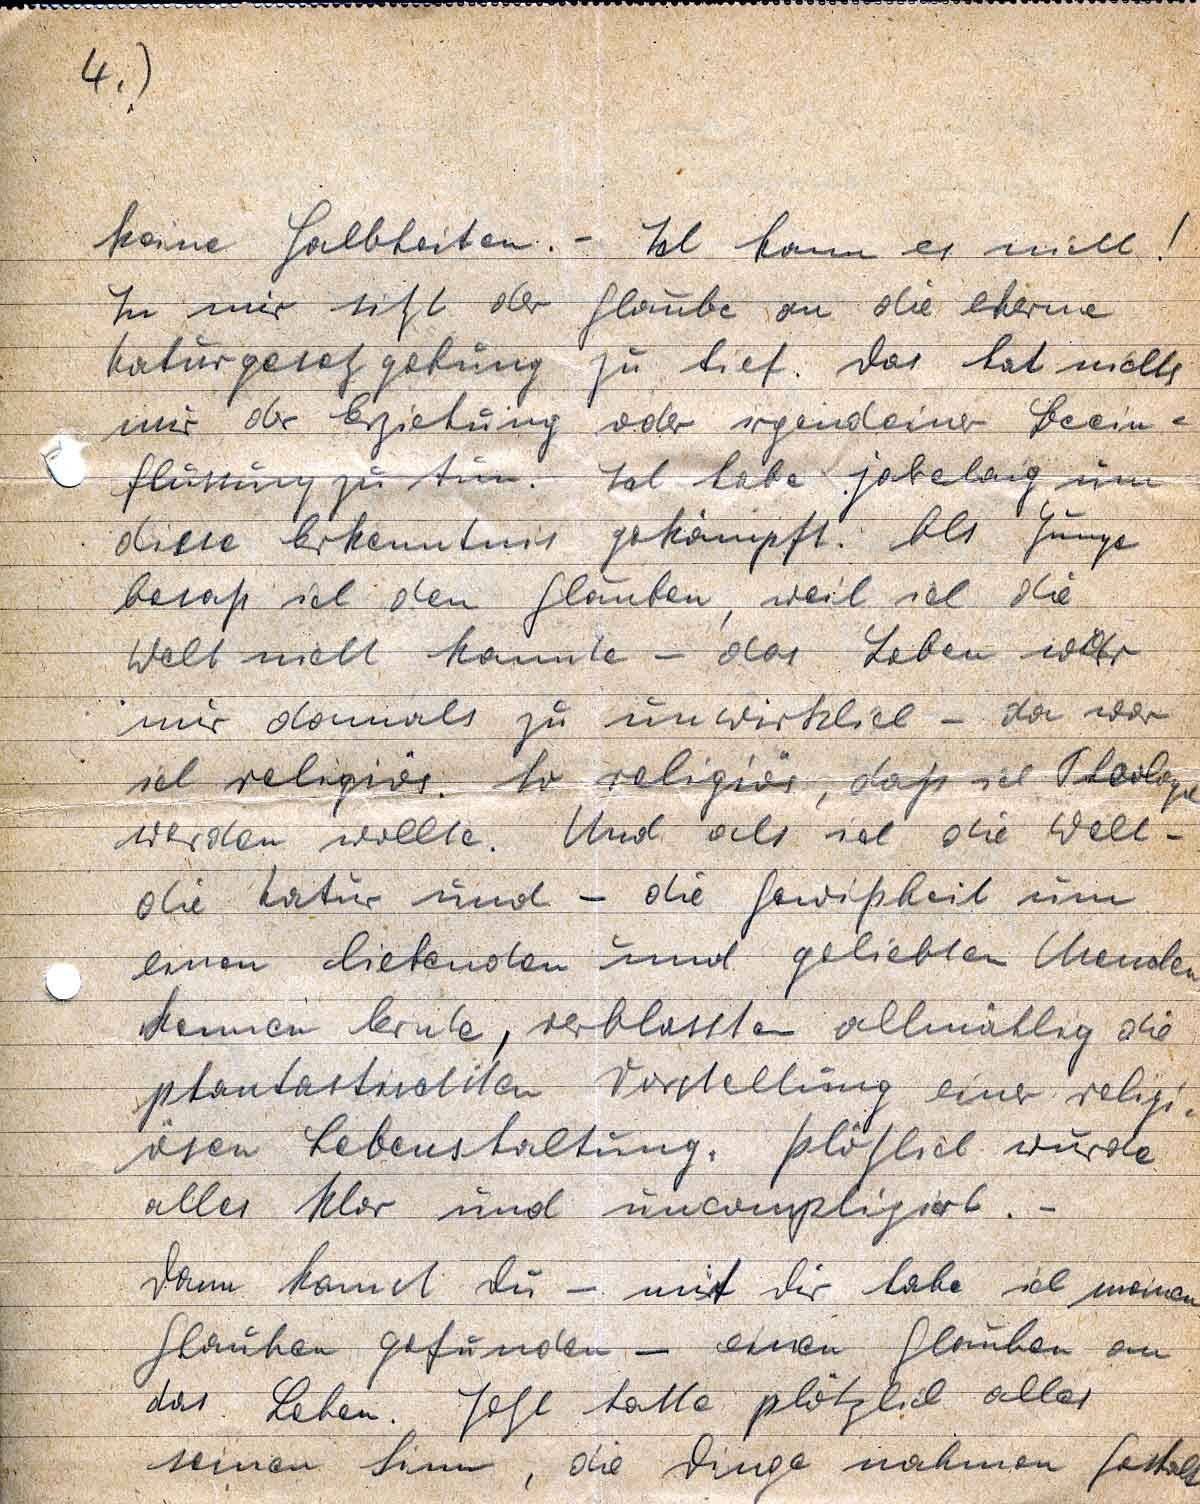 4.)
keine Halbheiten. - Ich kann es nicht!
In mir sitzt der Glaube an die eherne
Naturgesetzgebung zu tief. Das hat nichts
mir der Erziehung oder irgendeiner Beein-
flussung zu tun. Ich habe jahrelang um
diese Erkenntnis gekämpft. Als Junge
besaß ich den Glauben, weil ich die
Welt nicht kannte - das Leben war
mir damals zu unwirklich - da war
ich religiös. So religiös, daß ich Theologe
werden wollte. Und als ich die Welt -
die Natur und - die Gewißheit um
einen liebenden und geliebten Menschen
kennen lernte, verblassten allmählig die
phantastischten Vorstellung einer religi-
ösen Lebenshaltung. Plötzlich wurde
alles klar und uncompligiert. -
Dann kamst Du - mit Dir habe ich meinen
Glauben gefunden - einen Glauben an
das Leben. Jetzt hatte plötzlich alles
seinen Sinn, die Dinge nahmen Gestalt